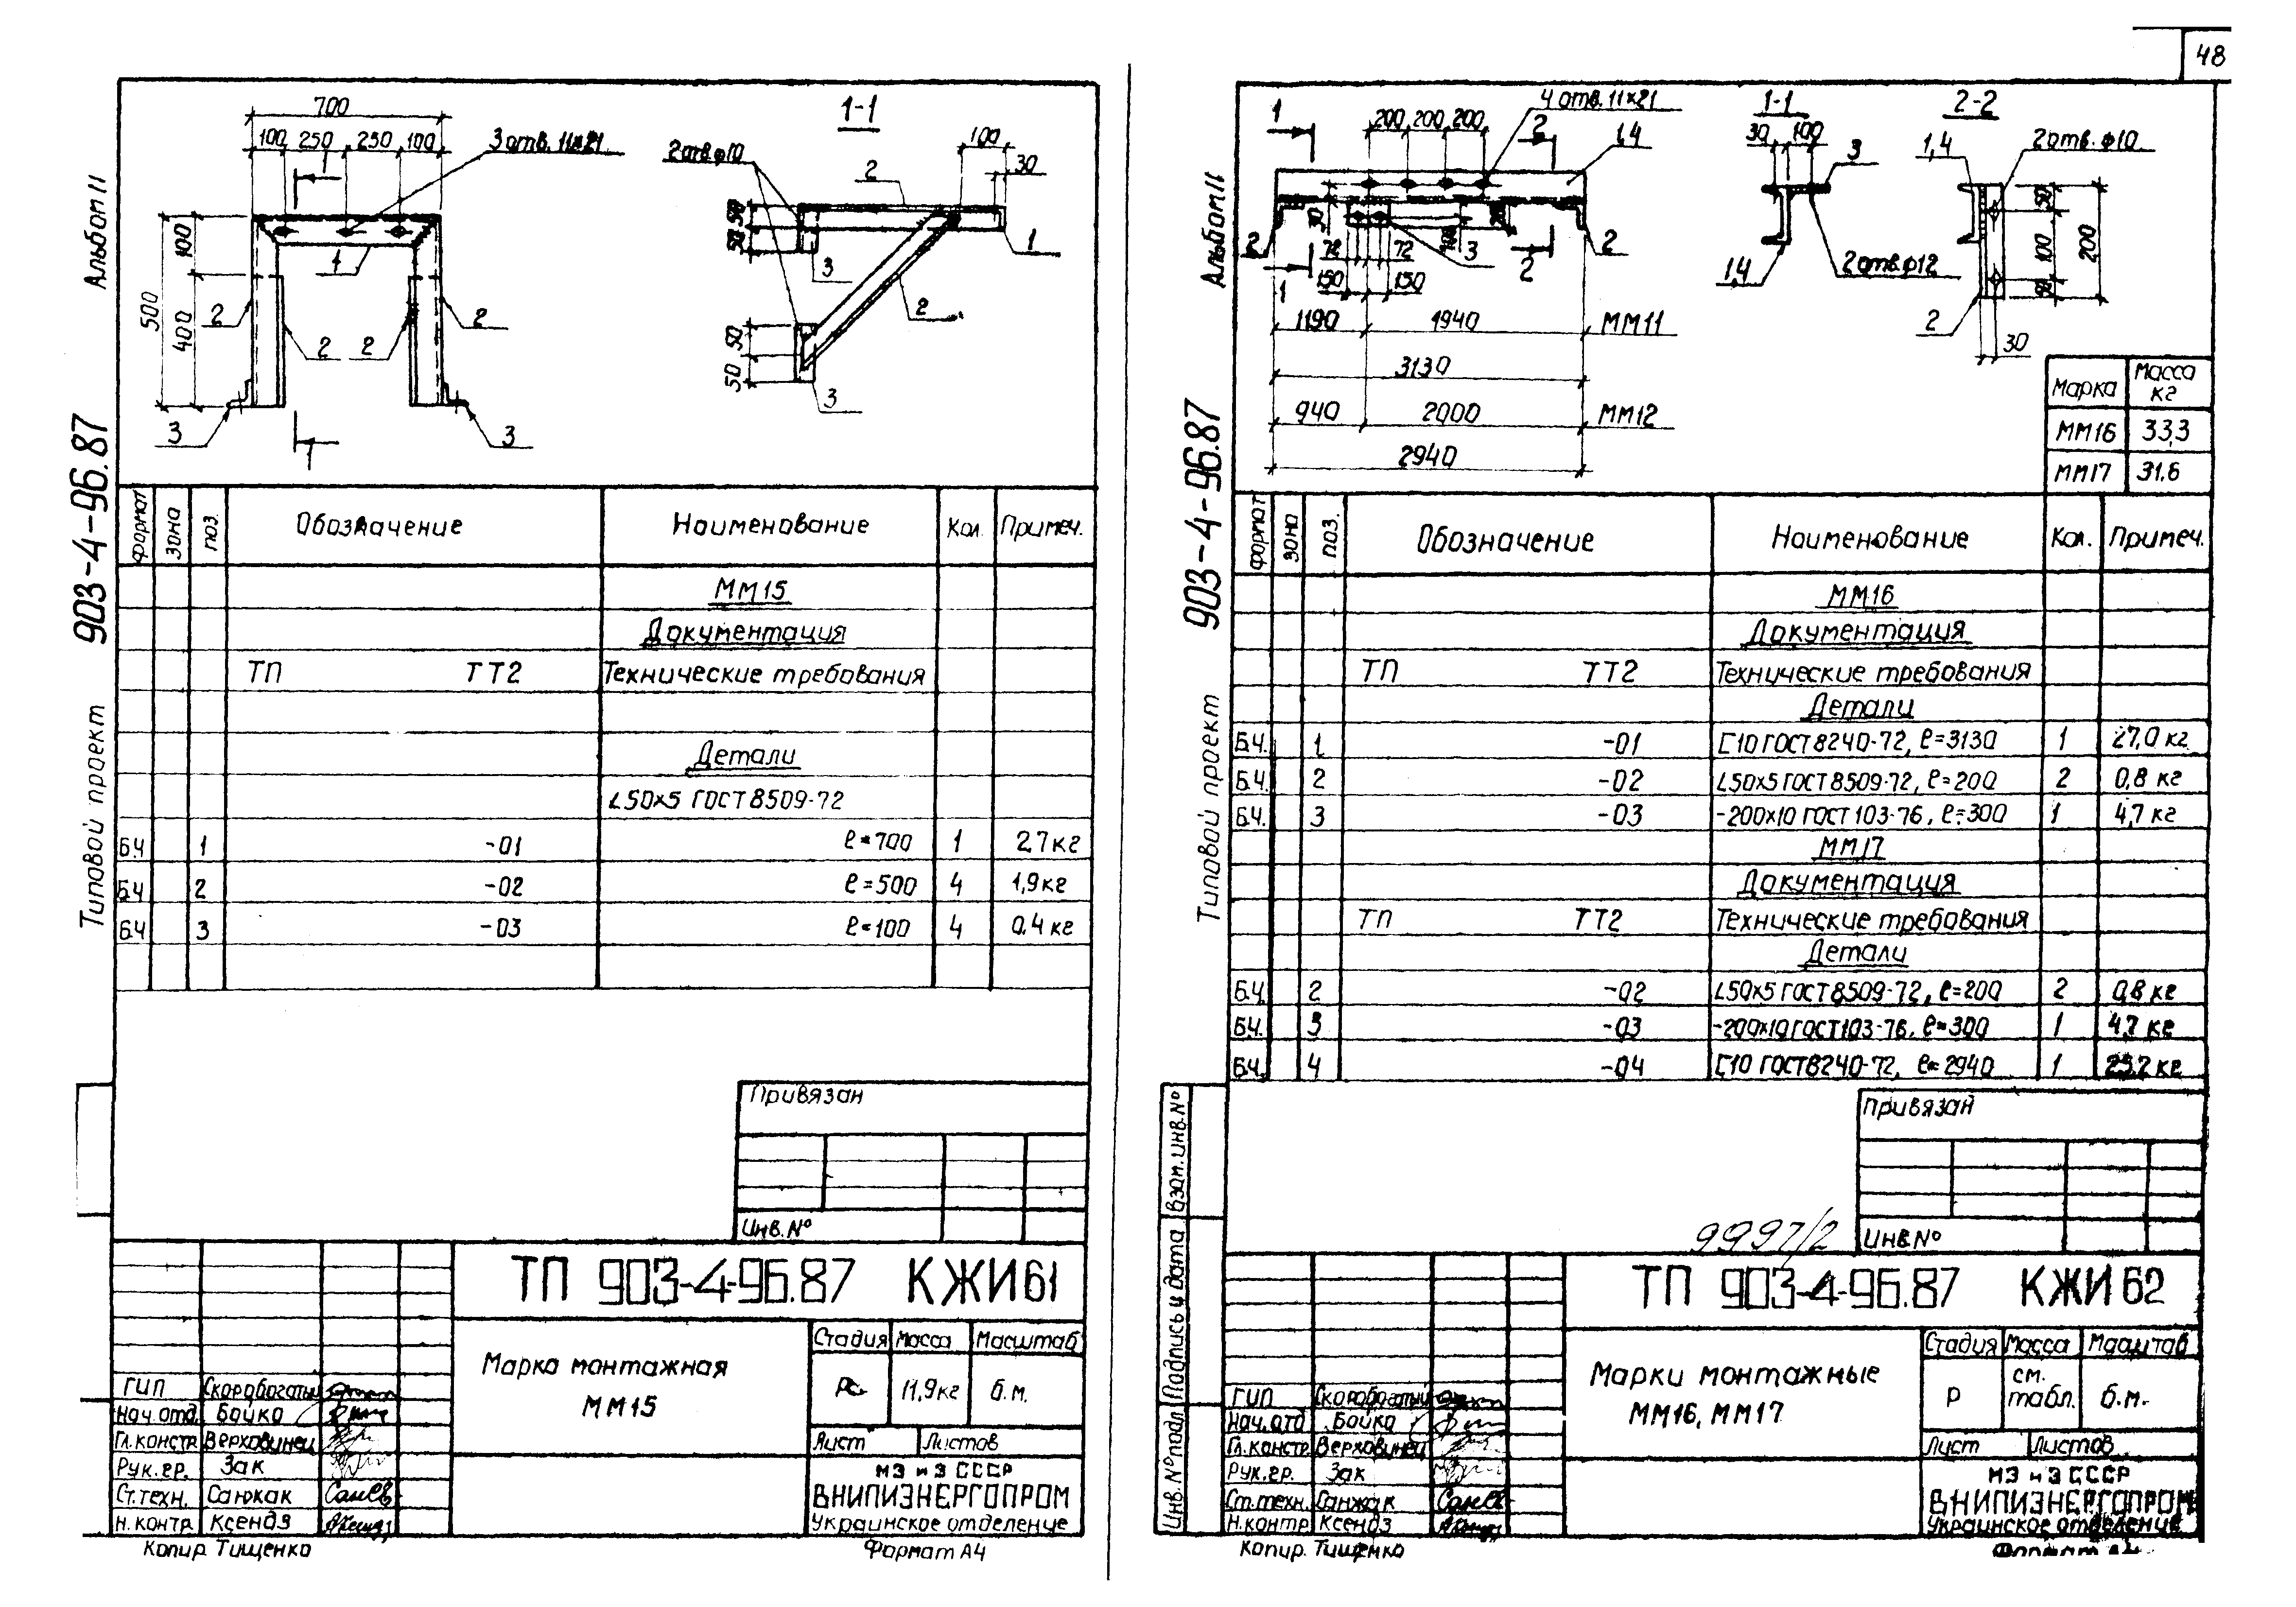 48
Альбом II
903-4-96.87
Типовой проект
700
100 250 250 100
3 отв. 11×21
1
1
500
100
400
2
2
2
2
3
3
1
1-1
2 отв. φ10
100
30
2
50
50
3
1
2
50
50
3
формат
зона
поз.
Обозначение
Наименование
Кол.
Примеч.
ММ15
Документация
ТП ТТ2 Технические требования
Детали
L50×5 ГОСТ 8509-72
Б.Ч 1 -01 ℓ=700 1 2,7кг
Б.Ч 2 -02 ℓ=500 4 1,9кг
Б.Ч 3 -03 ℓ=100 4 0,4кг
Привязан
Инв.№
ТП 903-4-96.87 КЖИ61
Марка монтажная
ММ15
Стадия Масса Масштаб
11,9кг б.м.
Лист Листов
МЭ и Э СССР
ВНИПИЭНЕРГОПРОМ
Украинское отделение
ГИП Скоробогатый
Нач.отд. Бойко
Гл.констр Верховинец
Рук.гр. Зак
Ст.техн. Санжак
Н.контр Ксендз
Копир. Тищенко
Формат А4
Альбом II
903-4-96.87
Типовой проект
1
200 200 200
4 отв. 11×21
2
1,4
2
72 72
3
2
2
150 150
1
1190 1940 ММ11
3130
940 2000 ММ12
2940
1-1
30 100
3
1,4
2 отв. φ12
2-2
1,4
2 отв. φ10
50
100
50
200
2
30
Марка Масса кг
ММ16 33,3
ММ17 31.6
формат
зона
поз.
Обозначение
Наименование
Кол.
Примеч.
ММ16
Документация
ТП ТТ2 Технические требования
Детали
Б.Ч. 1 -01 [10 ГОСТ 8240-72, ℓ=3130 1 27,0 кг
Б.Ч. 2 -02 L50×5 ГОСТ 8509-72, ℓ=200 2 0,8 кг
Б.Ч. 3 -03 -200×10 ГОСТ 103-76, ℓ=300 1 4,7 кг
ММ17
Документация
ТП ТТ2 Технические требования
Детали
Б.Ч. 2 -02 L50×5 ГОСТ 8509-72, ℓ=200 2 0,8 кг
Б.Ч. 3 -03 -200×10 ГОСТ 103-76, ℓ=300 1 4,7 кг
Б.Ч. 4 -04 [10 ГОСТ 8240-72, ℓ=2940 1 кг
Привязан
9997/2
Инв.№
Взам.инв.№
Подпись и дата
Инв.№подл
ТП 903-4-96.87 КЖИ62
Марки монтажные
ММ16, ММ17
Стадия Масса Масштаб
Р см. табл. б.м.
Лист Листов
МЭ и Э СССР
ВНИПИЭНЕРГОПРОМ
Украинское отделение
ГИП Скоробогатый
Нач.отд Бойко
Гл.констр Верховинец
Рук.гр. Зак
Ст.техн. Санжак
Н.контр Ксендз
Копир. Тищенко
Формат А4